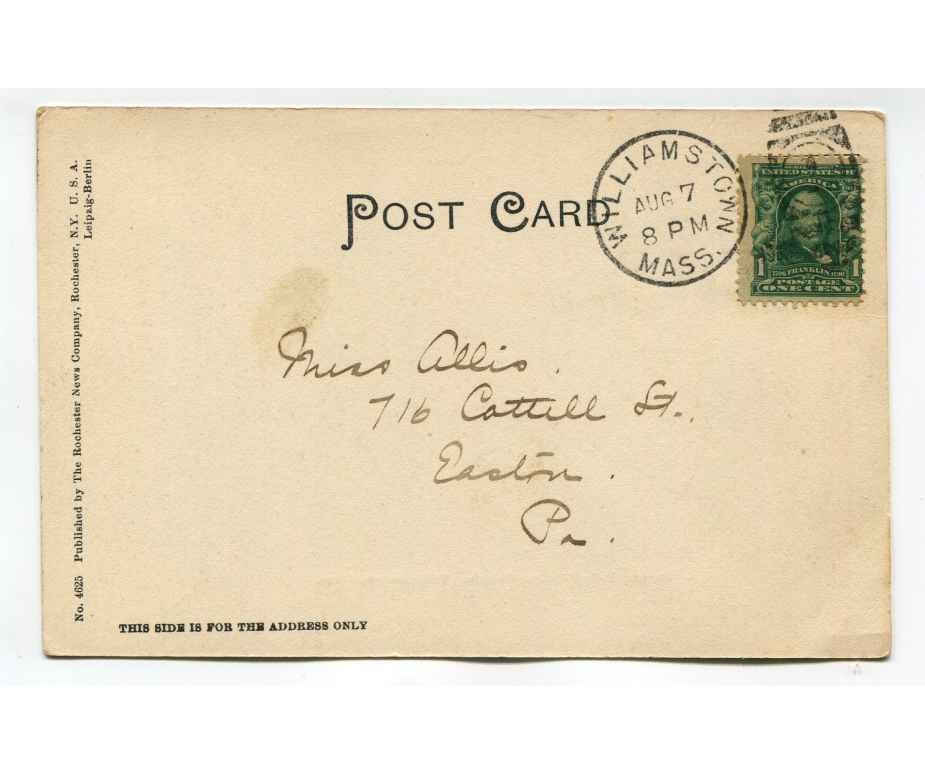 POST CARD
WILLIAMSTOWN
AUG 7
8 PM
MASS.
UNITED STATES OF
AMERICA
1 FRANKLIN 1
POSTAGE
ONE CENT
Miss Allis.
716 Cattell St.,
Easton.
Pa.
No. 4625 Published by The Rochester News Company, Rochester, N.Y. U. S. A.
Leipzig-Berlin
THIS SIDE IS FOR THE ADDRESS ONLY